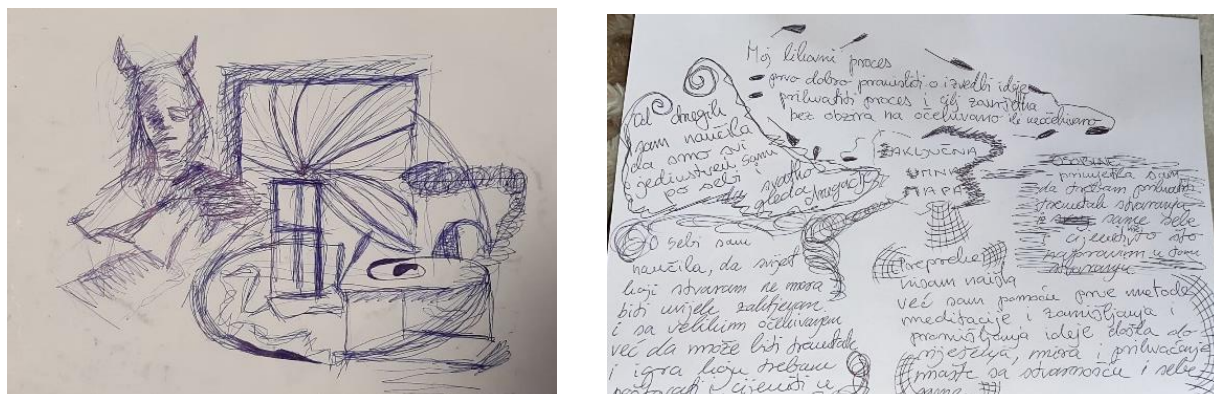 Moj likovni proces
prvo dobro promisliti o izvedbi ideje
prihvatiti proces i cilj završetka
bez obzira na očekivano ili neočekivano
Od drugih
sam naučila
da smo svi
jedinstveni samu
po sebi i
svatko
gleda drugačije
ZAKLJUČNA
UMNA
MAPA
OSOBINE
primjetila sam
da trebam prihvatiti
trenutak stvaranja
i same sebe
i cijeniti to što
napravim u tom
stvaranju
O sebi sam
naučila, da svijet
koji stvaram ne mora
biti uvijek zahtjevan
i sa velikim očekivanjem
već da može biti trenutak
i igra koju trebam
poštovati i cijeniti u
Prepreke
nisam naišla
već sam pomoću prve metode
meditacije i zamišljanja i
promišljanja ideje došla do
rješenja, mira i prihvaćanja
mašte sa stvarnošću i sebe